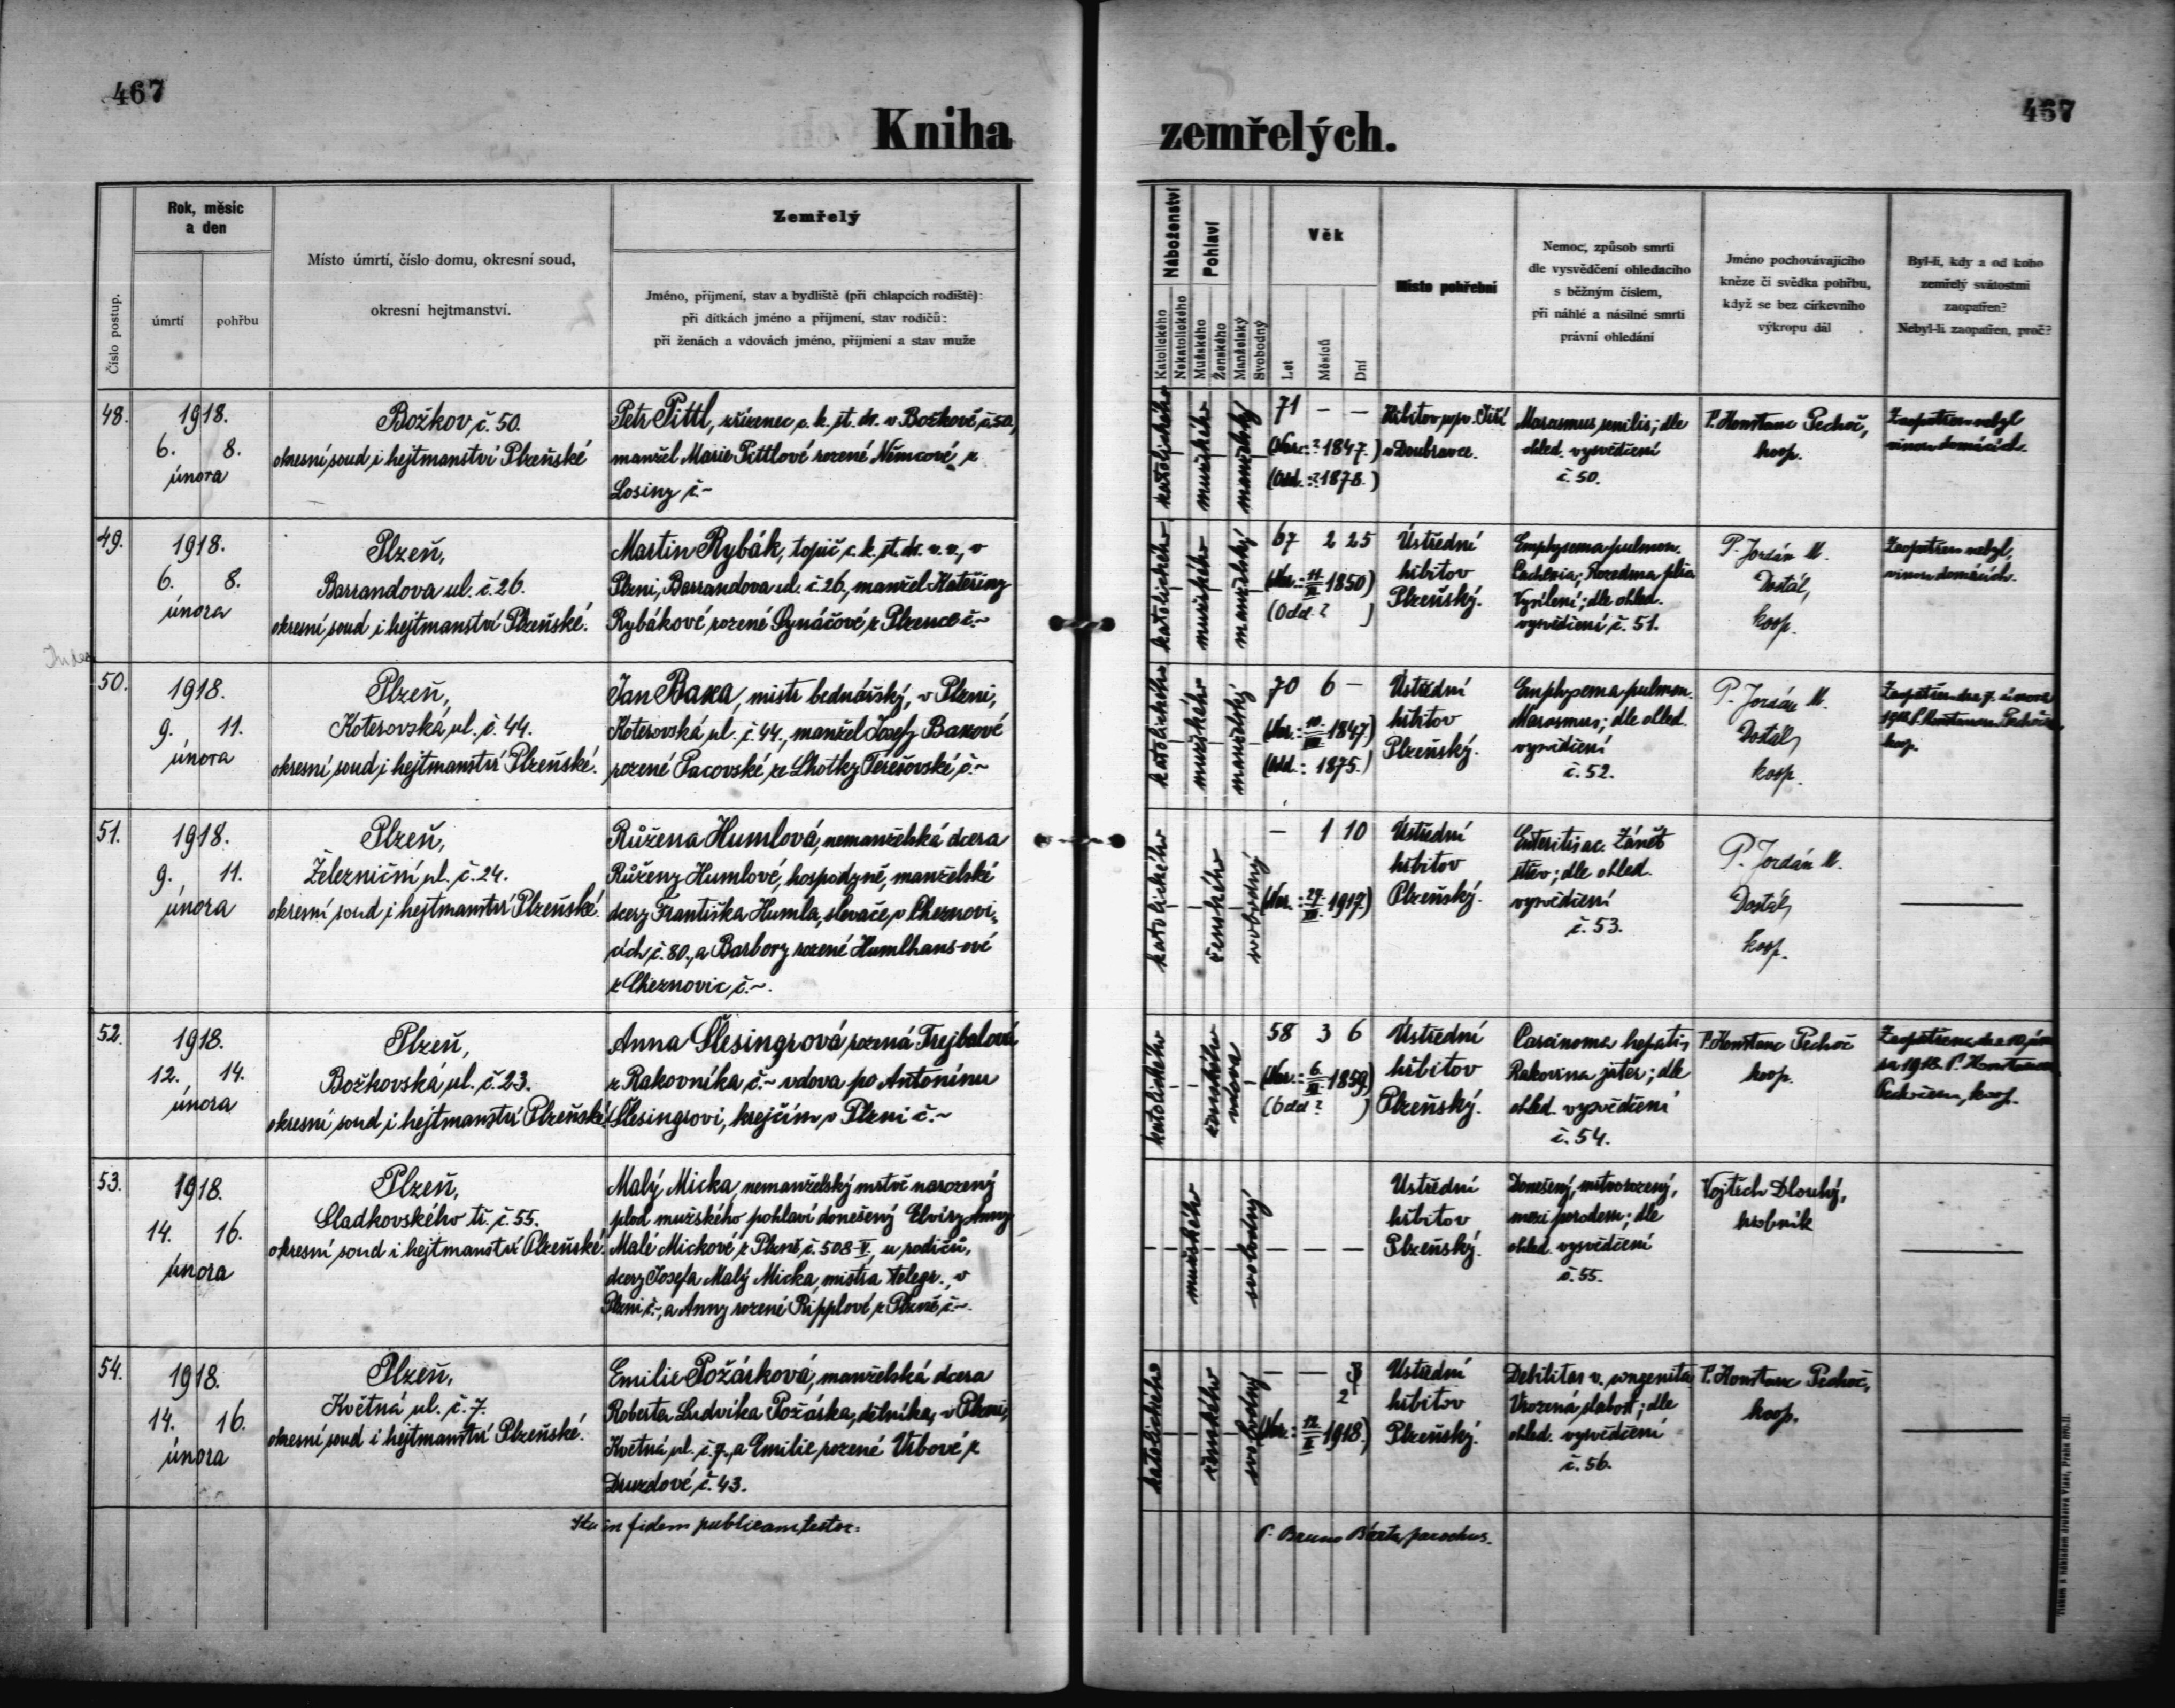 467
467
Kniha
zemřelých.
Číslo postup.
Rok, měsíc
a den
úmrtí
pohřbu
Místo úmrtí, číslo domu, okresní soud,
okresní hejtmanství.
Zemřelý
Jméno, příjmení, stav a bydliště (při chlapcích rodiště):
při dítkách jméno a příjmení, stav rodičů:
při ženách a vdovách jméno, příjmení a stav muže
Náboženství
Katolického
Nekatolického
Pohlaví
Mužského
Ženského
Manželský
Svobodný
Věk
Let
Měsíců
Dní
Místo pohřební
Nemoc, způsob smrti
dle vysvědčení ohledacího
s běžným číslem,
při náhlé a násilné smrti
právní ohledání
Jméno pochovávajícího
kněze či svědka pohřbu,
když se bez církevního
výkropu dál
Byl-li, kdy a od koho
zemřelý svátostmi
zaopatřen?
Nebyl-li zaopatřen, proč?
48.
1918.
6. 8.
února
Božkov č. 50.
okresní soud i hejtmanství Plzeňské
Petr Pittl, zřízenec c. k. st. dr. v Božkově č. 50,
manžel Marie Pittlové rozené Němcové z
Losiny č. ~
katolického
mužského
manželský
71 — —
(Nar.: ? 1847.)
(Odd.: ? 1878.)
Hřbitov sv. Jiří
v Doubravce.
Marasmus senilis; dle
ohled. vysvědčení
č. 50.
P. Konstanc Pechoč,
koop.
Zaopatřen nebyl
vinou domácích.
49.
1918.
6. 8.
února
Plzeň,
Barrandova ul. č. 26.
okresní soud i hejtmanství Plzeňské.
Martin Rybák, topič c. k. st. dr. v. v., v
Plzni, Barrandova ul. č. 26., manžel Kateřiny
Rybákové rozené Gynáčové z Plzence č. ~
katolického
mužského
manželský
67 2 25
(Nar.: 11/XI 1850)
(Odd. ? )
Ústřední
hřbitov
Plzeňský.
Emphysema pulmon.
Cachexia; Rozedma plic
Vysílení; dle ohled.
vysvědčení č. 51.
P. Jordán M.
Dostál,
koop.
Zaopatřen nebyl,
vinou domácích.
50.
1918.
9. 11.
února
Plzeň,
Koterovská ul. č. 44.
okresní soud i hejtmanství Plzeňské.
Jan Baxa, mistr bednářský, v Plzni,
Koterovská ul. č. 44., manžel Josefy Baxové
rozené Pacovské ze Lhotky Terešovské č. ~
katolického
mužského
manželský
70 6 —
(Nar.: 10/VIII 1847)
(Odd.: 1875.)
Ústřední
hřbitov
Plzeňský.
Emphysema pulmon.
Marasmus; dle ohled.
vysvědčení
č. 52.
P. Jordán M.
Dostál,
koop.
Zaopatřen dne 7. února
1918 P. Konstancem Pechočem
koop.
51.
1918.
9. 11.
února
Plzeň,
Železniční ul. č. 24.
okresní soud i hejtmanství Plzeňské.
Růžena Humlová, nemanželská dcera
Růženy Humlové, hospodyně, manželské
dcery Františka Humla, slevače, v Cheznovi-
cích č. 80., a Barbory rozené Humlhans-ové
z Cheznovic č. ~.
katolického
ženského
svobodný
— 1 10
(Nar.: 27/XII 1917)
Ústřední
hřbitov
Plzeňský.
Enteritis ac. Zánět
střev; dle ohled.
vysvědčení
č. 53.
P. Jordán M.
Dostál,
koop.
52.
1918.
12. 14.
února
Plzeň,
Božkovská ul. č. 23.
okresní soud i hejtmanství Plzeňské
Anna Šlesingrová rozená Trejbalová
z Rakovníka č. ~ vdova po Antonínu
Šlesingrovi, krejčím v Plzni č. ~
katolického
ženského
vdova
58 3 6
(Nar.: 6/XI 1859)
(Odd ? )
Ústřední
hřbitov
Plzeňský.
Carcinoma hepatis,
Rakovina jater; dle
ohled. vysvědčení
č. 54.
P. Konstanc Pechoč
koop.
Zaopatřena dne 10 úno-
ra 1918. P. Konstancem
Pechočem, koop.
53.
1918.
14. 16.
února
Plzeň,
Sladkovského tř. č. 55.
okresní soud i hejtmanství Plzeňské.
Malý Micka, nemanželský mrtvě narozený
plod mužského pohlaví donešený Elvíry Anny
Malé Mickové z Plzně č. 508 V, u rodičů,
dcery Josefa Malý Micka, mistra telegr., v
Plzni č. ~, a Anny rozené Ripplové z Plzně, č. ~.
mužského
svobodný
— — —
Ústřední
hřbitov
Plzeňský.
Donešený, mrtvorozený,
mezi porodem; dle
ohled. vysvědčení
č. 55.
Vojtěch Dlouhý,
hrobník
54.
1918.
14. 16.
února
Plzeň,
Květná ul. č. 7.
okresní soud i hejtmanství Plzeňské.
Emilie Požárková, manželská dcera
Roberta Ludvíka Požárka, dělníka, v Plzni,
Květná ul. č. 7, a Emilie rozené Vrbové z
Druzdové č. 43.
katolického
ženského
svobodný
— — 3
2
(Nar.: 12/II 1918.)
Ústřední
hřbitov
Plzeňský.
Debilitas v. congenita
Vrozená slabost; dle
ohled. vysvědčení
č. 56.
P. Konstanc Pechoč,
koop.
Ita in fidem publicam testor:
P. Bruno Bárta, parochus.
Index